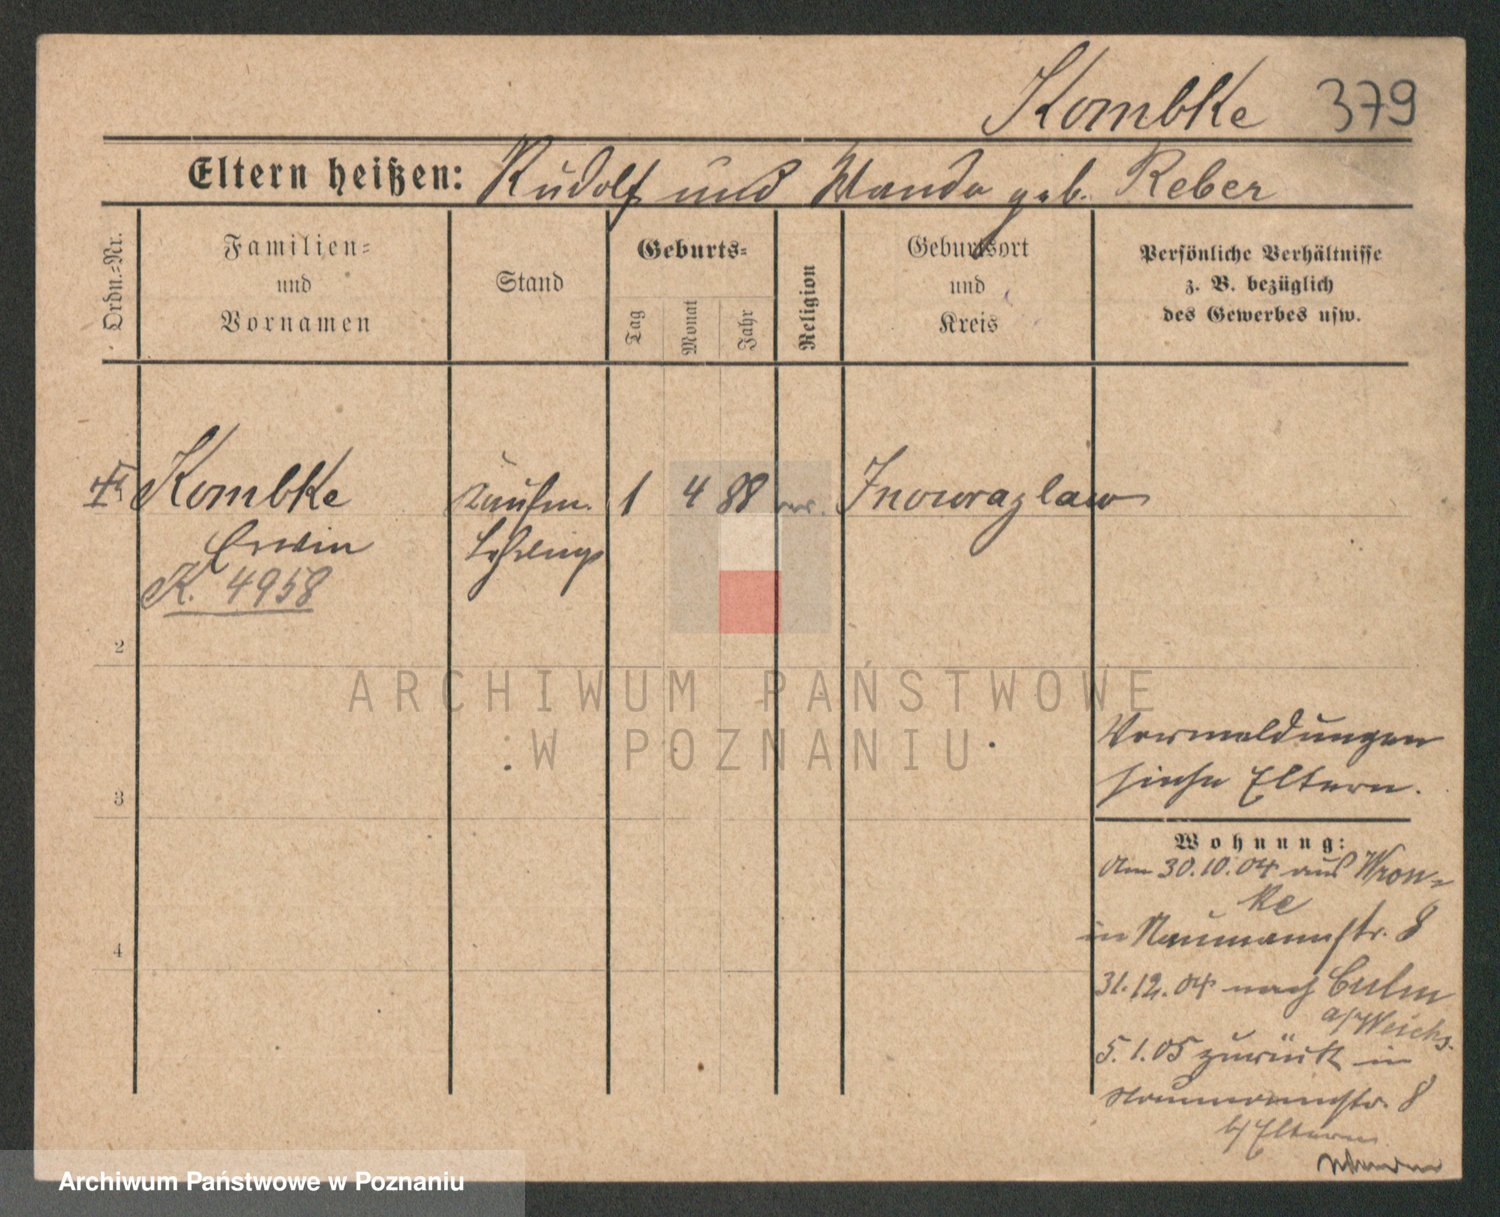 Kombke 379
Eltern heißen: Rudolf und Wanda geb. Reber
Ordn.=Nr.
Familien=
und
Vornamen
Stand
Geburts=
Tag
Monat
Jahr
Religion
Geburtsort
und
Kreis
Persönliche Verhältnisse
z. B. bezüglich
des Gewerbes usw.
Kombke Kaufm. 1 4 88 Inowrazlaw
Erwin Lehrling
K. 4958
2
3
4
Vormeldungen
siehe Eltern.
Wohnung:
Am 30.10.04 aus Wron=
ke
in Naumannstr. 8
31.12.04 nach Culm
a/Weichs.
5.1.05 zurück in
Naumannstr. 8
b/Eltern
ARCHIWUM PAŃSTWOWE
W POZNANIU
Archiwum Państwowe w Poznaniu